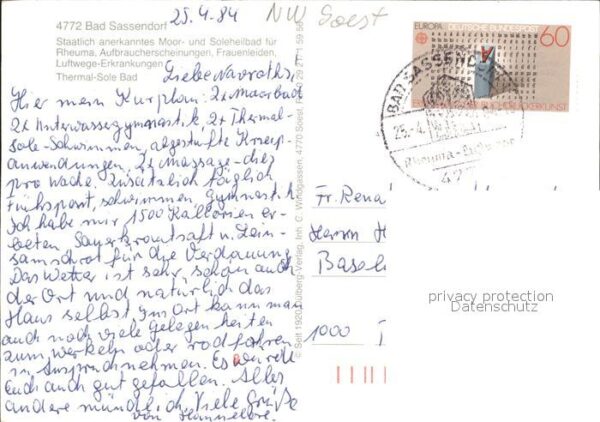 25.4.84
NW Soest
4772 Bad Sassendorf
Staatlich anerkanntes Moor- und Soleheilbad für
Rheuma, Aufbraucherscheinungen, Frauenleiden,
Luftwege-Erkrankungen
Thermal-Sole Bad
Hier mein Kurplan: 2x Moorbad
2x Unterwassergymnastik, 2x Thermal-
sole-Schwimmen, abgestufte Kneip-
anwendungen, 2x Massage - dies
pro Woche. Zusätzlich täglich
Frühsport, schwimmen, Gymnastik
Ich habe mir 1500 Kallorien er-
beten Sauerkrautsaft u. Lein-
samschrot für die Verdauung
Das Wetter ist sehr schön auch
der Ort und natürlich das
Haus selbst. Im Ort kann man
auch noch viele Gelegenheiten
zum Werkeln oder radfahren
in Anspruch nehmen. Es würde
Euch auch gut gefallen. Alles
andere mündlich. Viele Grüße
von Hannelore.
© Seit 1920 Dülberg-Verlag, Inh. C. Windgassen, 4770 Soest
EUROPA DEUTSCHE BUNDESPOST
60
BAD SASSENDORF
25.-4.
Rheuma-
477
Fr. Rena
Herrn H
1000
privacy protection
Datenschutz